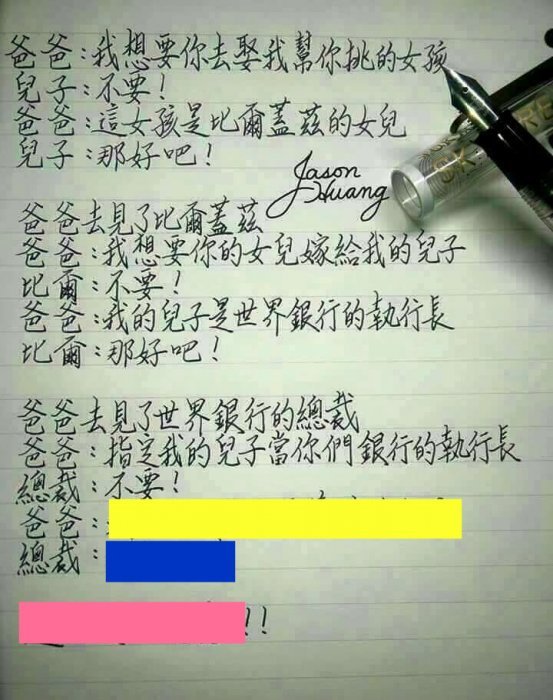 爸爸：我想要你去娶我幫你挑的女孩
兒子：不要！
爸爸：這女孩是比爾蓋茲的女兒
兒子：那好吧！
Jason Huang
爸爸去見了比爾蓋茲
爸爸：我想要你的女兒嫁給我的兒子
比爾：不要！
爸爸：我的兒子是世界銀行的執行長
比爾：那好吧！
爸爸去見了世界銀行的總裁
爸爸：指定我的兒子當你們銀行的執行長
總裁：不要！
爸爸：
總裁：
!!